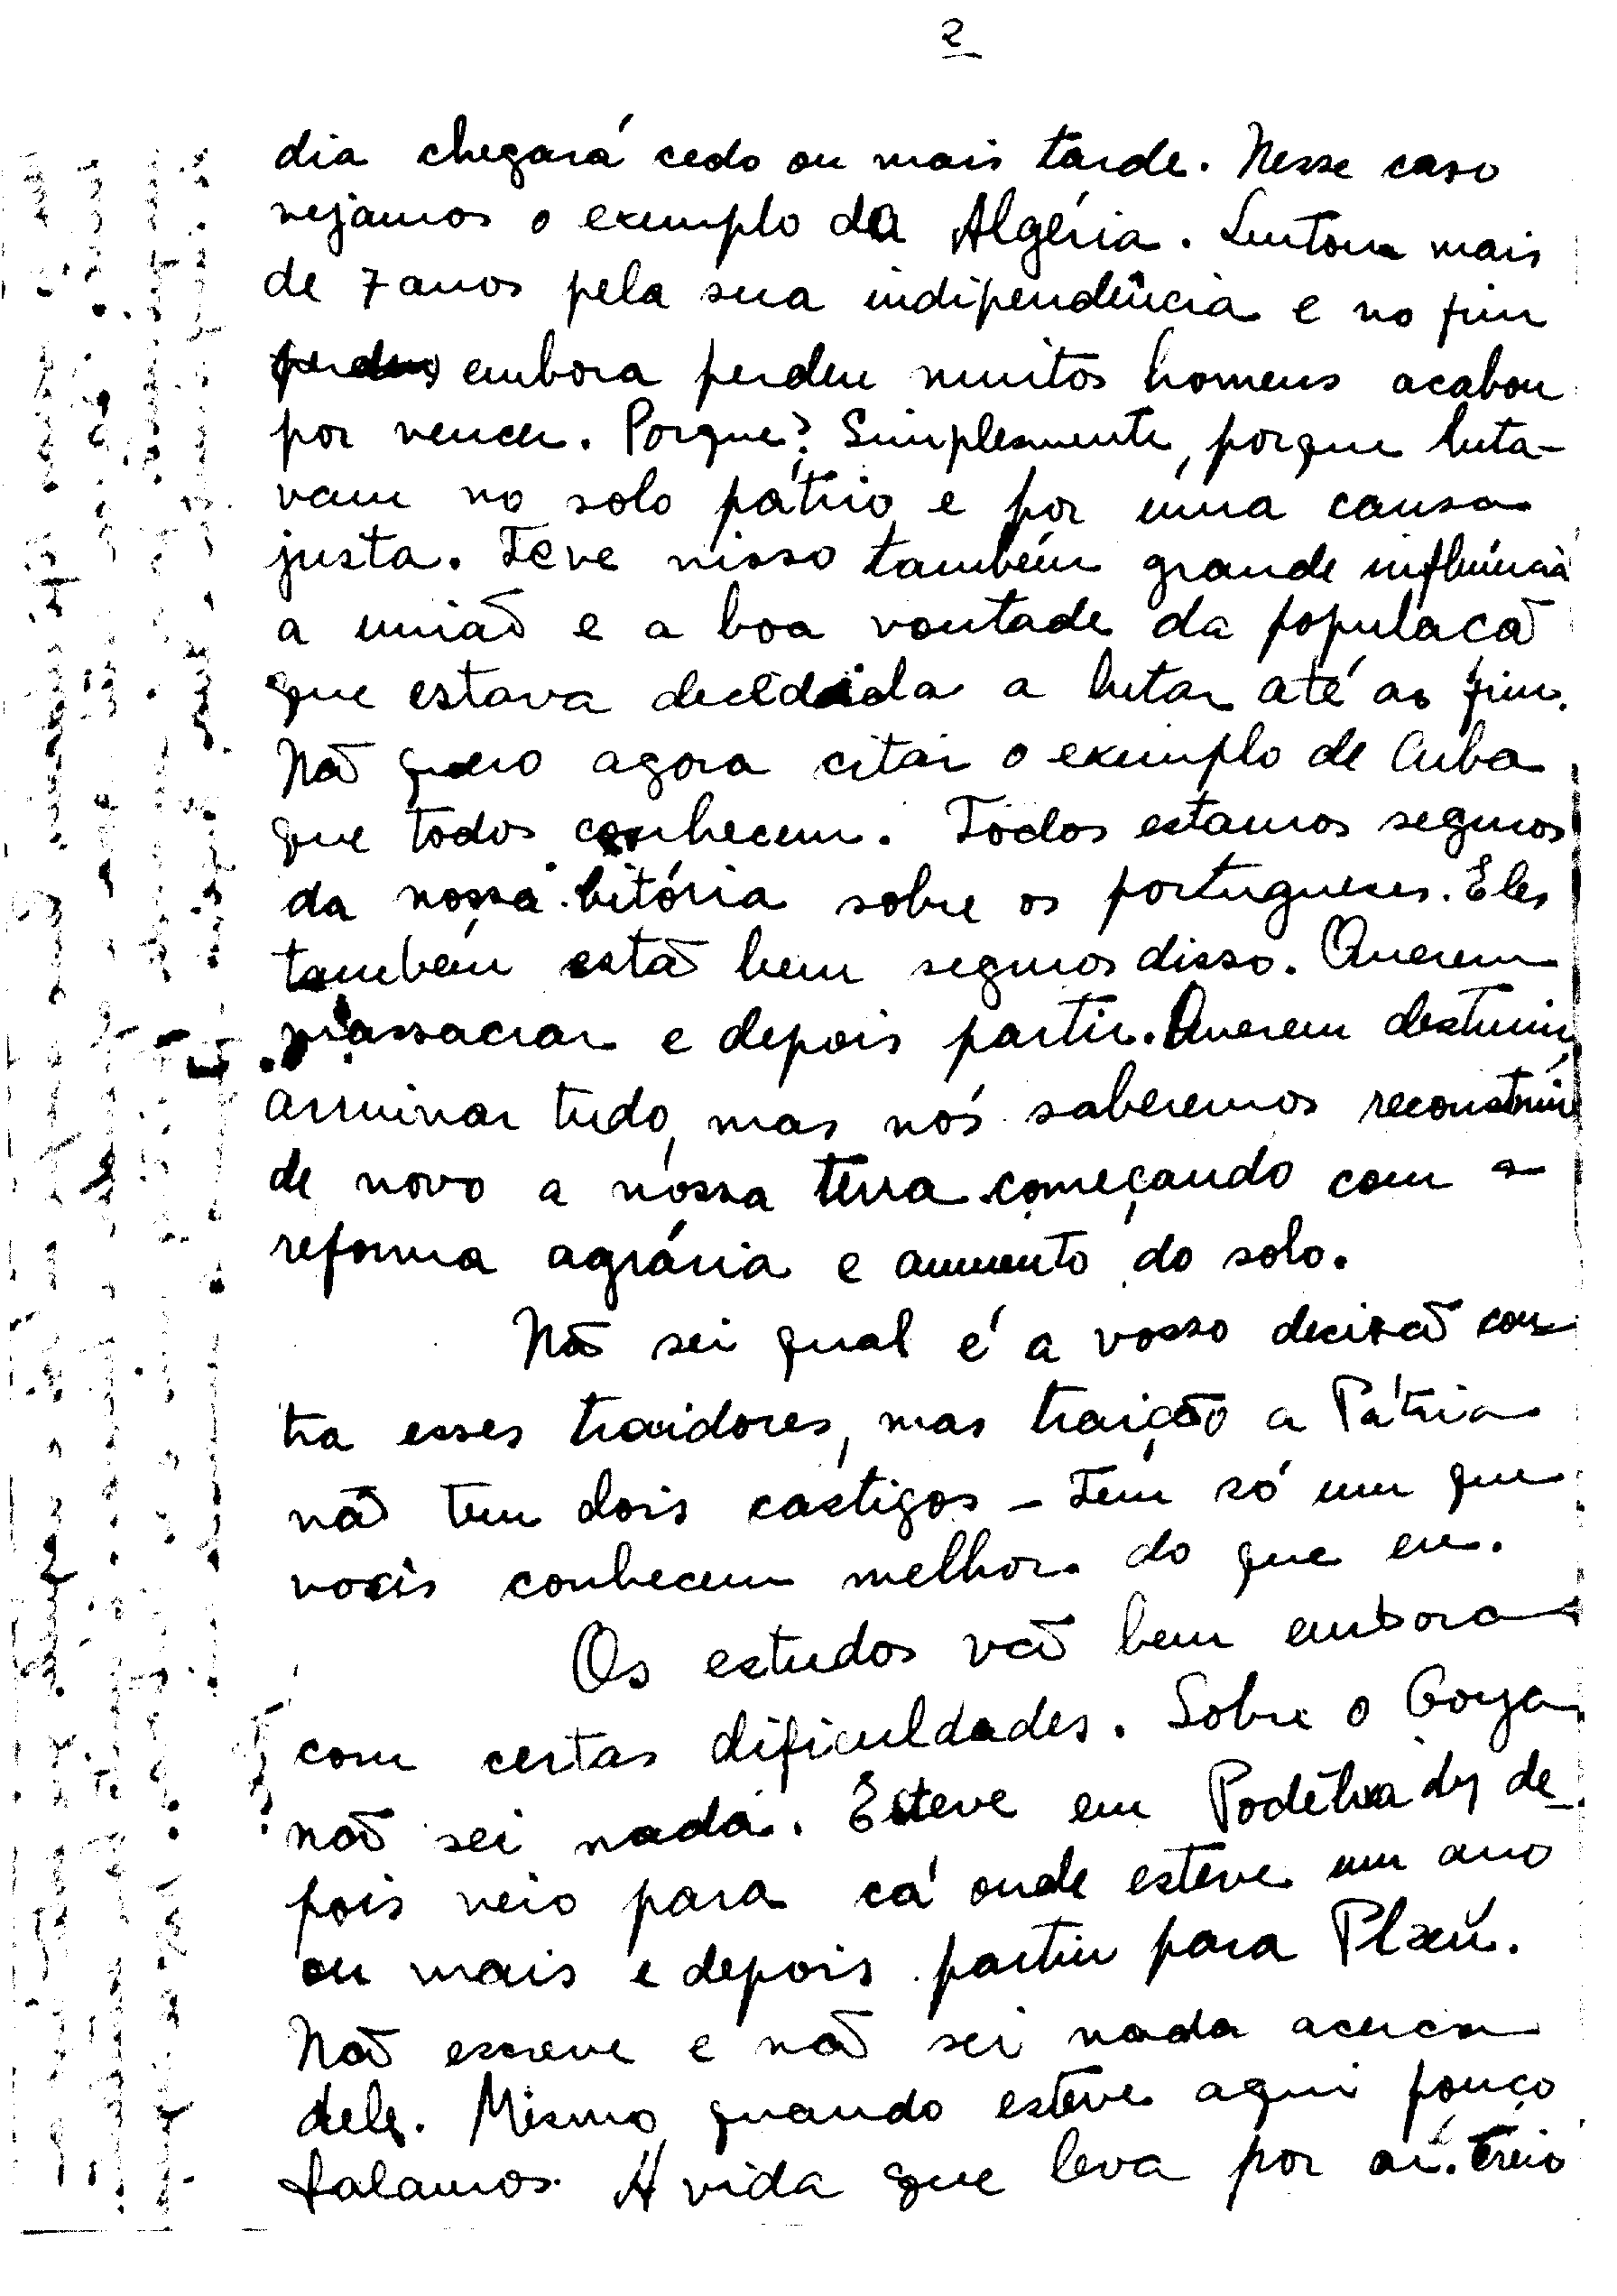 2
dia chegará cedo ou mais tarde. Nesse caso
vejamos o exemplo da Algéria. Lutou mais
de 7 anos pela sua indipendência e no fim
perdeu embora perdeu muitos homens acabou
por vencer. Porque? Simplesmente, porque luta-
vam no solo pátrio e por uma causa
justa. Teve nisso também grande influência
a uniaõ e a boa vontade da populacaõ
que estava decidida a lutar até ao fim.
Naõ quero agora citar o exemplo de Cuba
que todos conhecem. Todos estamos seguros
da nossa bitória sobre os portugueses. Eles
também estaõ bem seguros disso. Querem
massacrar e depois partir. Querem destruir,
arruinar tudo, mas nós saberemos reconstruir
de novo a nossa terra começando com a
reforma agrária e aumento do solo.
Naõ sei qual é a vosso decisaõ con-
tra esses traidores, mas traição a Pátria
naõ tem dois castigos - Tem só um que
vocês conhecem melhor do que eu.
Os estudos vaõ bem embora
com certas dificuldades. Sobre o
naõ sei nada. Esteve em Poděbrady de-
pois veio para cá onde esteve um ano
ou mais e depois partiu para Plzeň.
Naõ escreve e naõ sei nada acerca
dele. Mesmo quando esteve aqui pouco
falamos. A vida que leva por aí. Creio